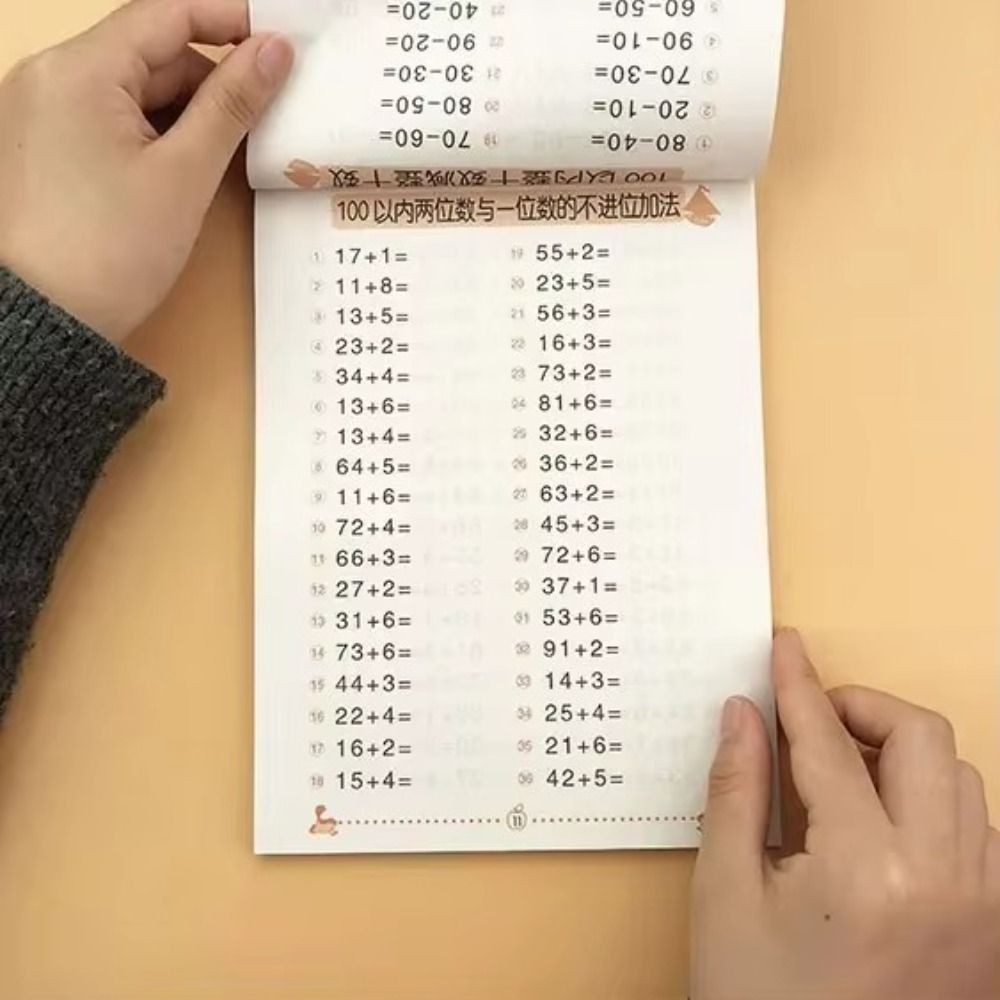 ⑤ 60-50= ㉓ 40-20=
④ 90-10= ㉒ 90-20=
③ 70-30= ㉑ 30-30=
② 20-10= ⑳ 80-50=
① 80-40= ⑲ 70-60=
100以内整十数减整十数
100以内两位数与一位数的不进位加法
① 17+1= ⑲ 55+2=
② 11+8= ⑳ 23+5=
③ 13+5= ㉑ 56+3=
④ 23+2= ㉒ 16+3=
⑤ 34+4= ㉓ 73+2=
⑥ 13+6= ㉔ 81+6=
⑦ 13+4= ㉕ 32+6=
⑧ 64+5= ㉖ 36+2=
⑨ 11+6= ㉗ 63+2=
⑩ 72+4= ㉘ 45+3=
⑪ 66+3= ㉙ 72+6=
⑫ 27+2= ㉚ 37+1=
⑬ 31+6= ㉛ 53+6=
⑭ 73+6= ㉜ 91+2=
⑮ 44+3= ㉝ 14+3=
⑯ 22+4= ㉞ 25+4=
⑰ 16+2= ㉟ 21+6=
⑱ 15+4= ㊱ 42+5=
11